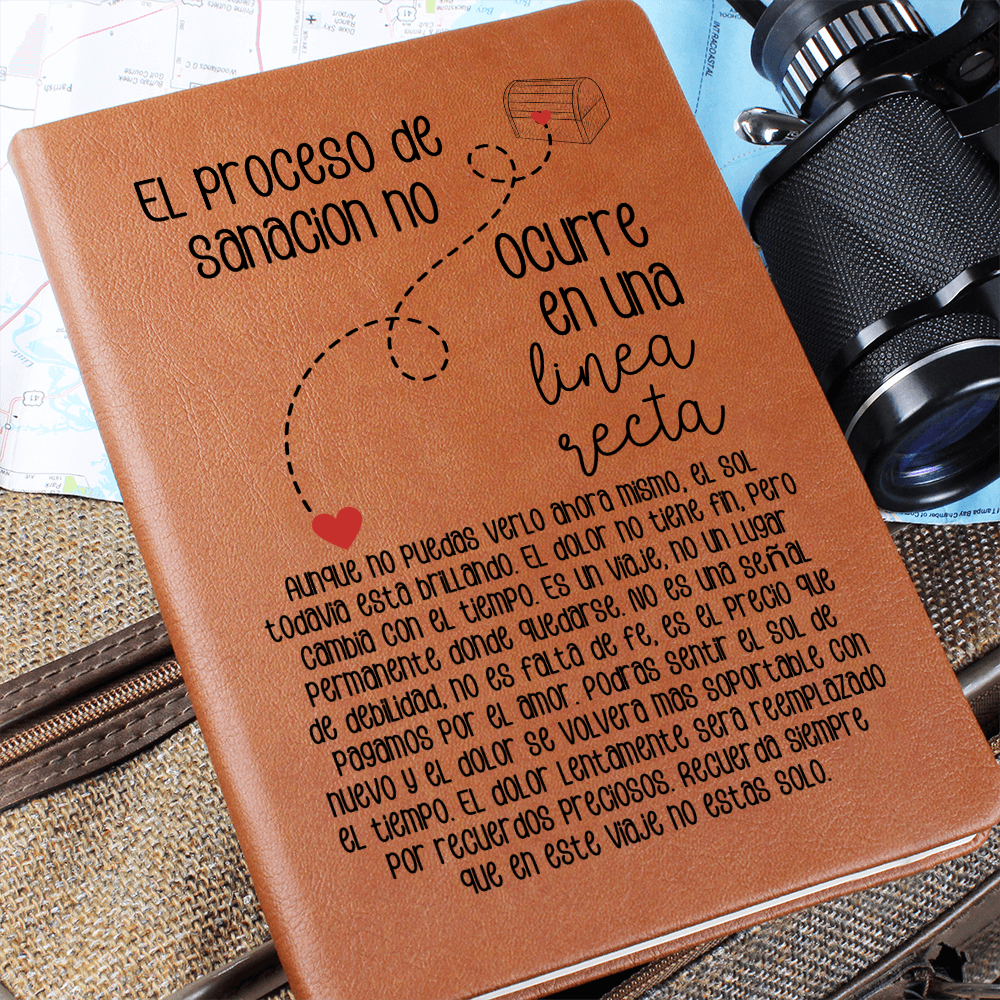 Airport
Ranch
Dixie Sky
Woodlands G C
Buffalo Creek
Golf Course
Parrish
41
41
INTRACOASTAL
El proceso de
sanacion no
ocurre
en una
linea
recta
Aunque no puedas verlo ahora mismo, el sol
todavia esta brillando. El dolor no tiene fin, pero
cambia con el tiempo. Es un viaje, no un lugar
permanente donde quedarse. No es una señal
de debilidad, no es falta de fe, es el precio que
pagamos por el amor. Podras sentir el sol de
nuevo y el dolor se volvera mas soportable con
el tiempo. El dolor lentamente sera reemplazado
por recuerdos preciosos. Recuerda siempre
que en este viaje no estas solo.
Tampa Bay Chamber of